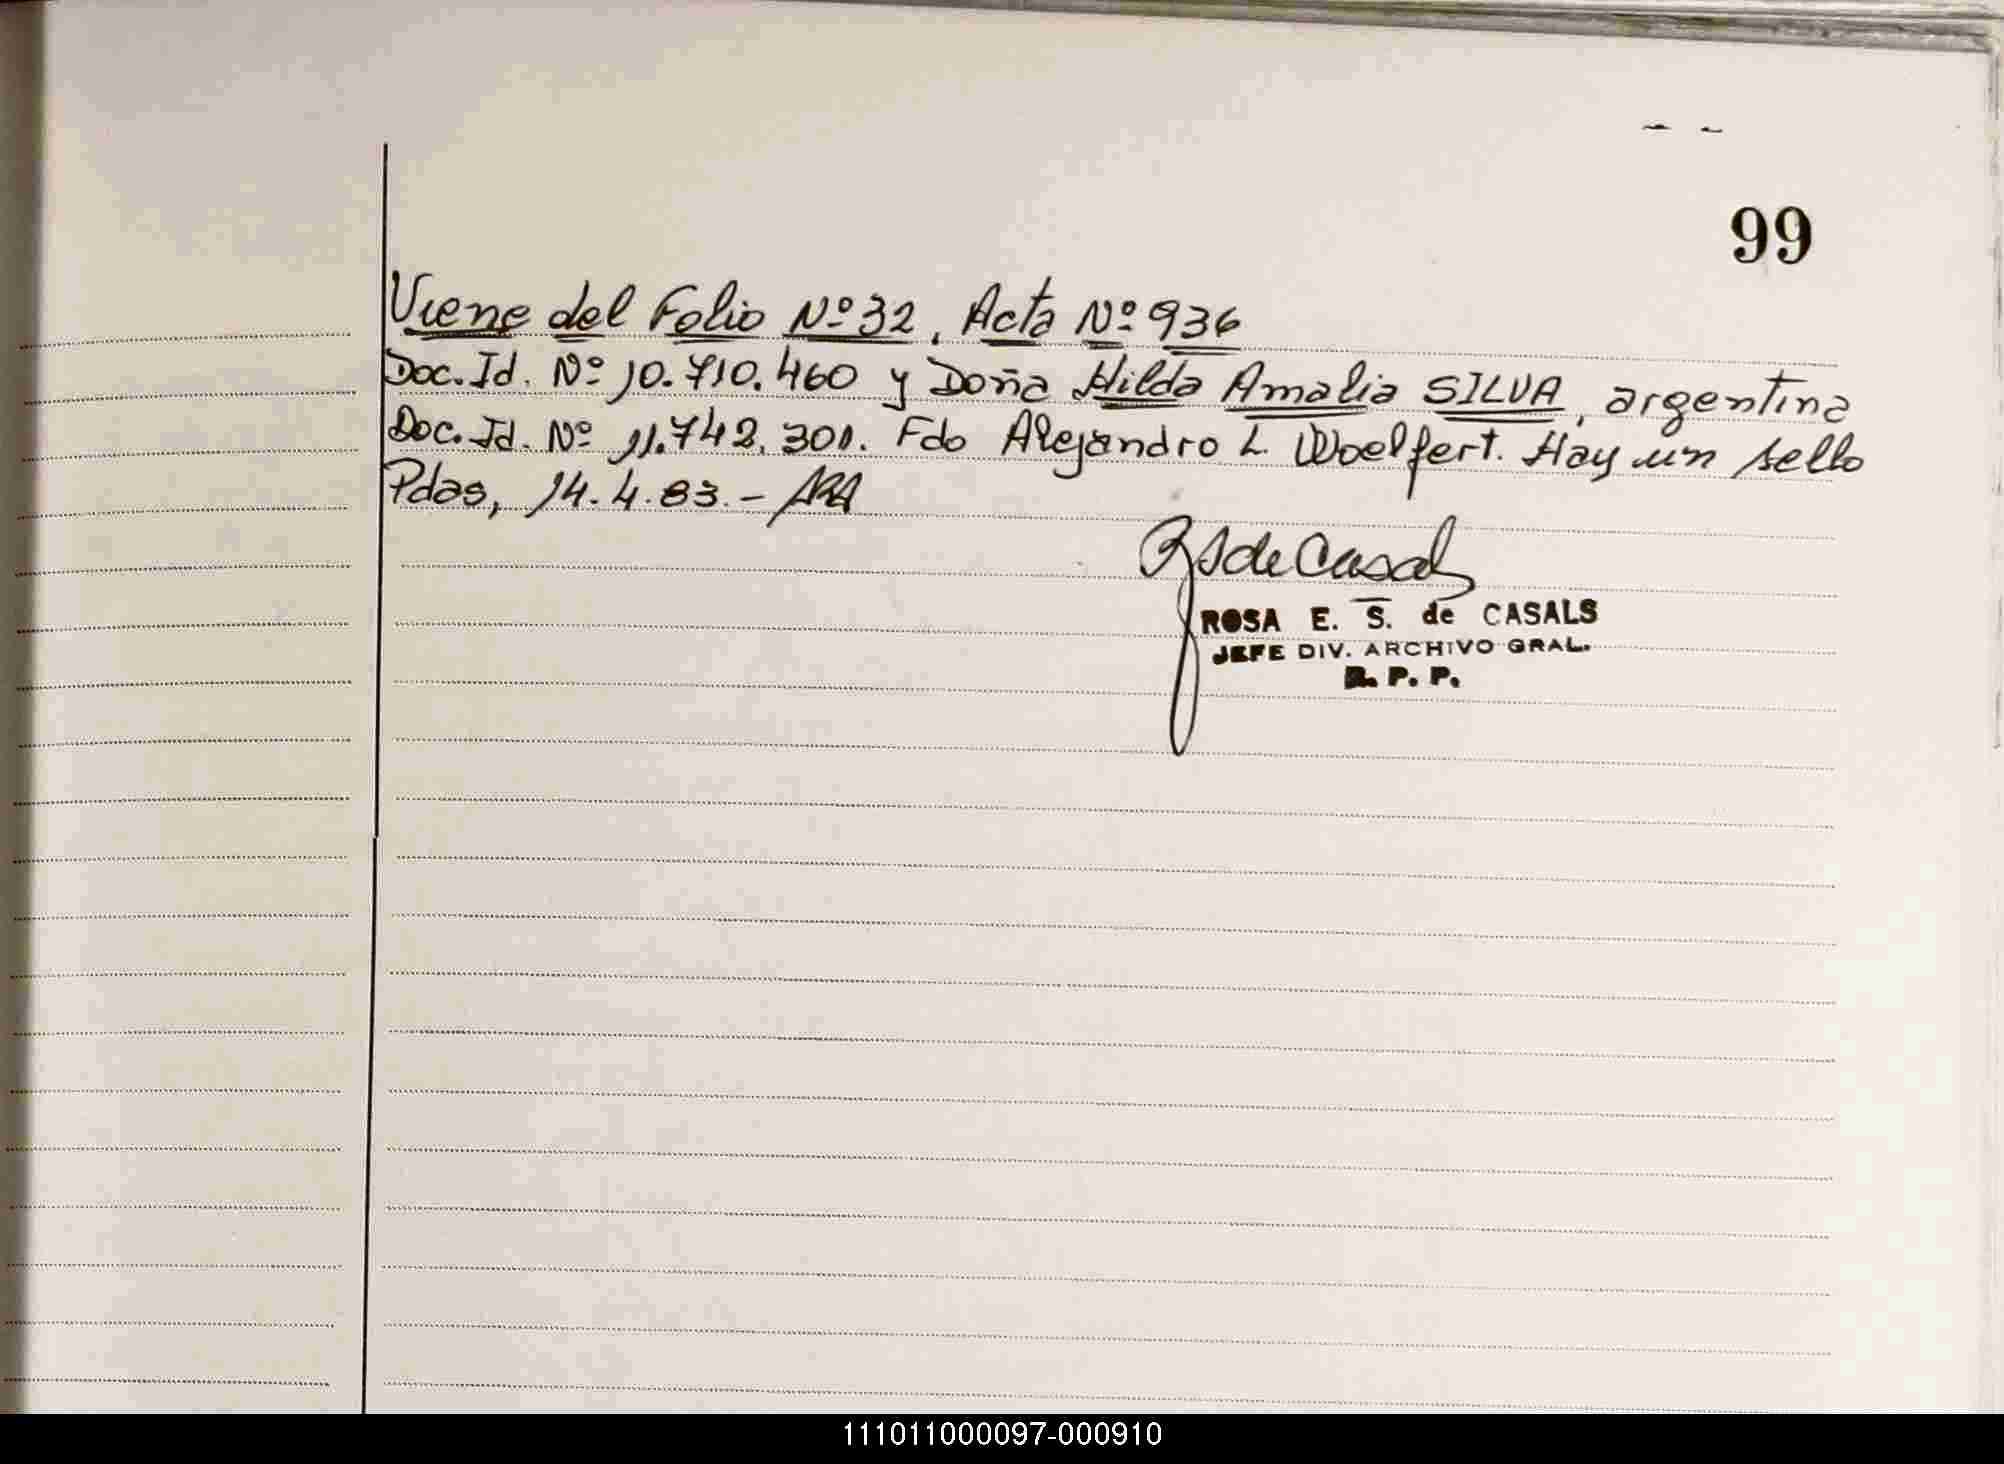 99
Viene del Folio Nº 32, Acta Nº 936
Doc. Id. Nº 10.710.460 y Doña Hilda Amalia SILVA, argentina
Doc. Id. Nº 11.742.301. Fdo Alejandro L. Woelfert. Hay un sello
Pdas, 14.4.83.-
ROSA E. S. de CASALS
JEFE DIV. ARCHIVO GRAL.
R. P. P.
111011000097-000910